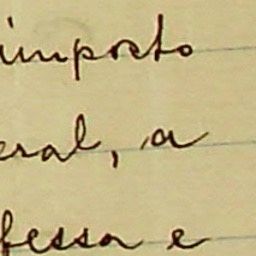 imposto
eral, a
fessa e